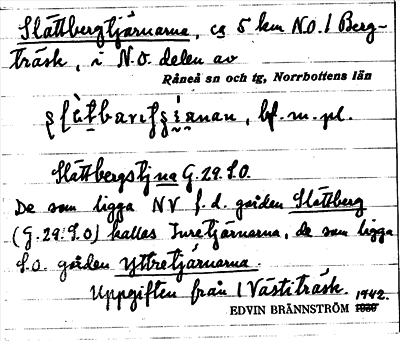 Slåttbergtjärnarna, ca 5 km N.O. / Berg-
träsk, i N.O. delen av
Råneå sn och tg, Norrbottens län
bf. m. pl.
Slåttbergstjna G. 29. S.O.
De som ligga NV f. d. gården Slåttberg
(G. 29. S.O) kallas Inretjärnarna, de som ligga
S.O. gården Yttretjärnarna.
Uppgiften från / Västiträsk.
EDVIN BRÄNNSTRÖM 1942.